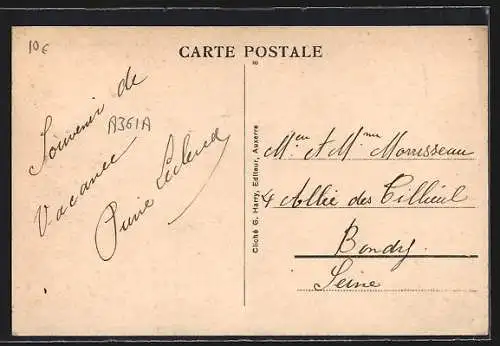 10€
CARTE POSTALE
Souvenir de
Vacance
A361A
Leclercq
Cliché G. Harry, Editeur, Auxerre
Mr et Mme Morisseau
4 Allée des Tilleul
Bondy
Seine